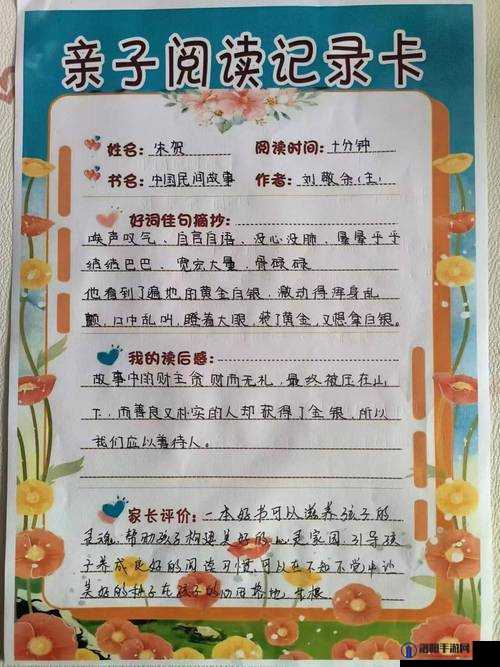 亲子阅读记录卡
姓名: 宋贺 阅读时间: 十分钟
书名: 中国民间故事 作者: 刘敬余(主)
好词佳句摘抄:
唉声叹气、自言自语、没心没肺、晕晕乎乎
结结巴巴、宽宏大量、骨碌碌
他看到了遍地的黄金白银,激动得浑身乱
颤,口中乱叫,瞪着大眼,装了黄金,又想拿白银。
我的读后感:
故事中的财主贪财而无礼,最终被压在山
下,而善良又朴实的人却获得了金银,所以
我们应以善待人。
家长评价: 一本好书可以滋养孩子的
灵魂,帮助孩子构建美好的心灵家园,引导孩
子养成良好的阅读习惯,可以在不知不觉中让
美好的种子在孩子的心田落地生根
洛阳手游网